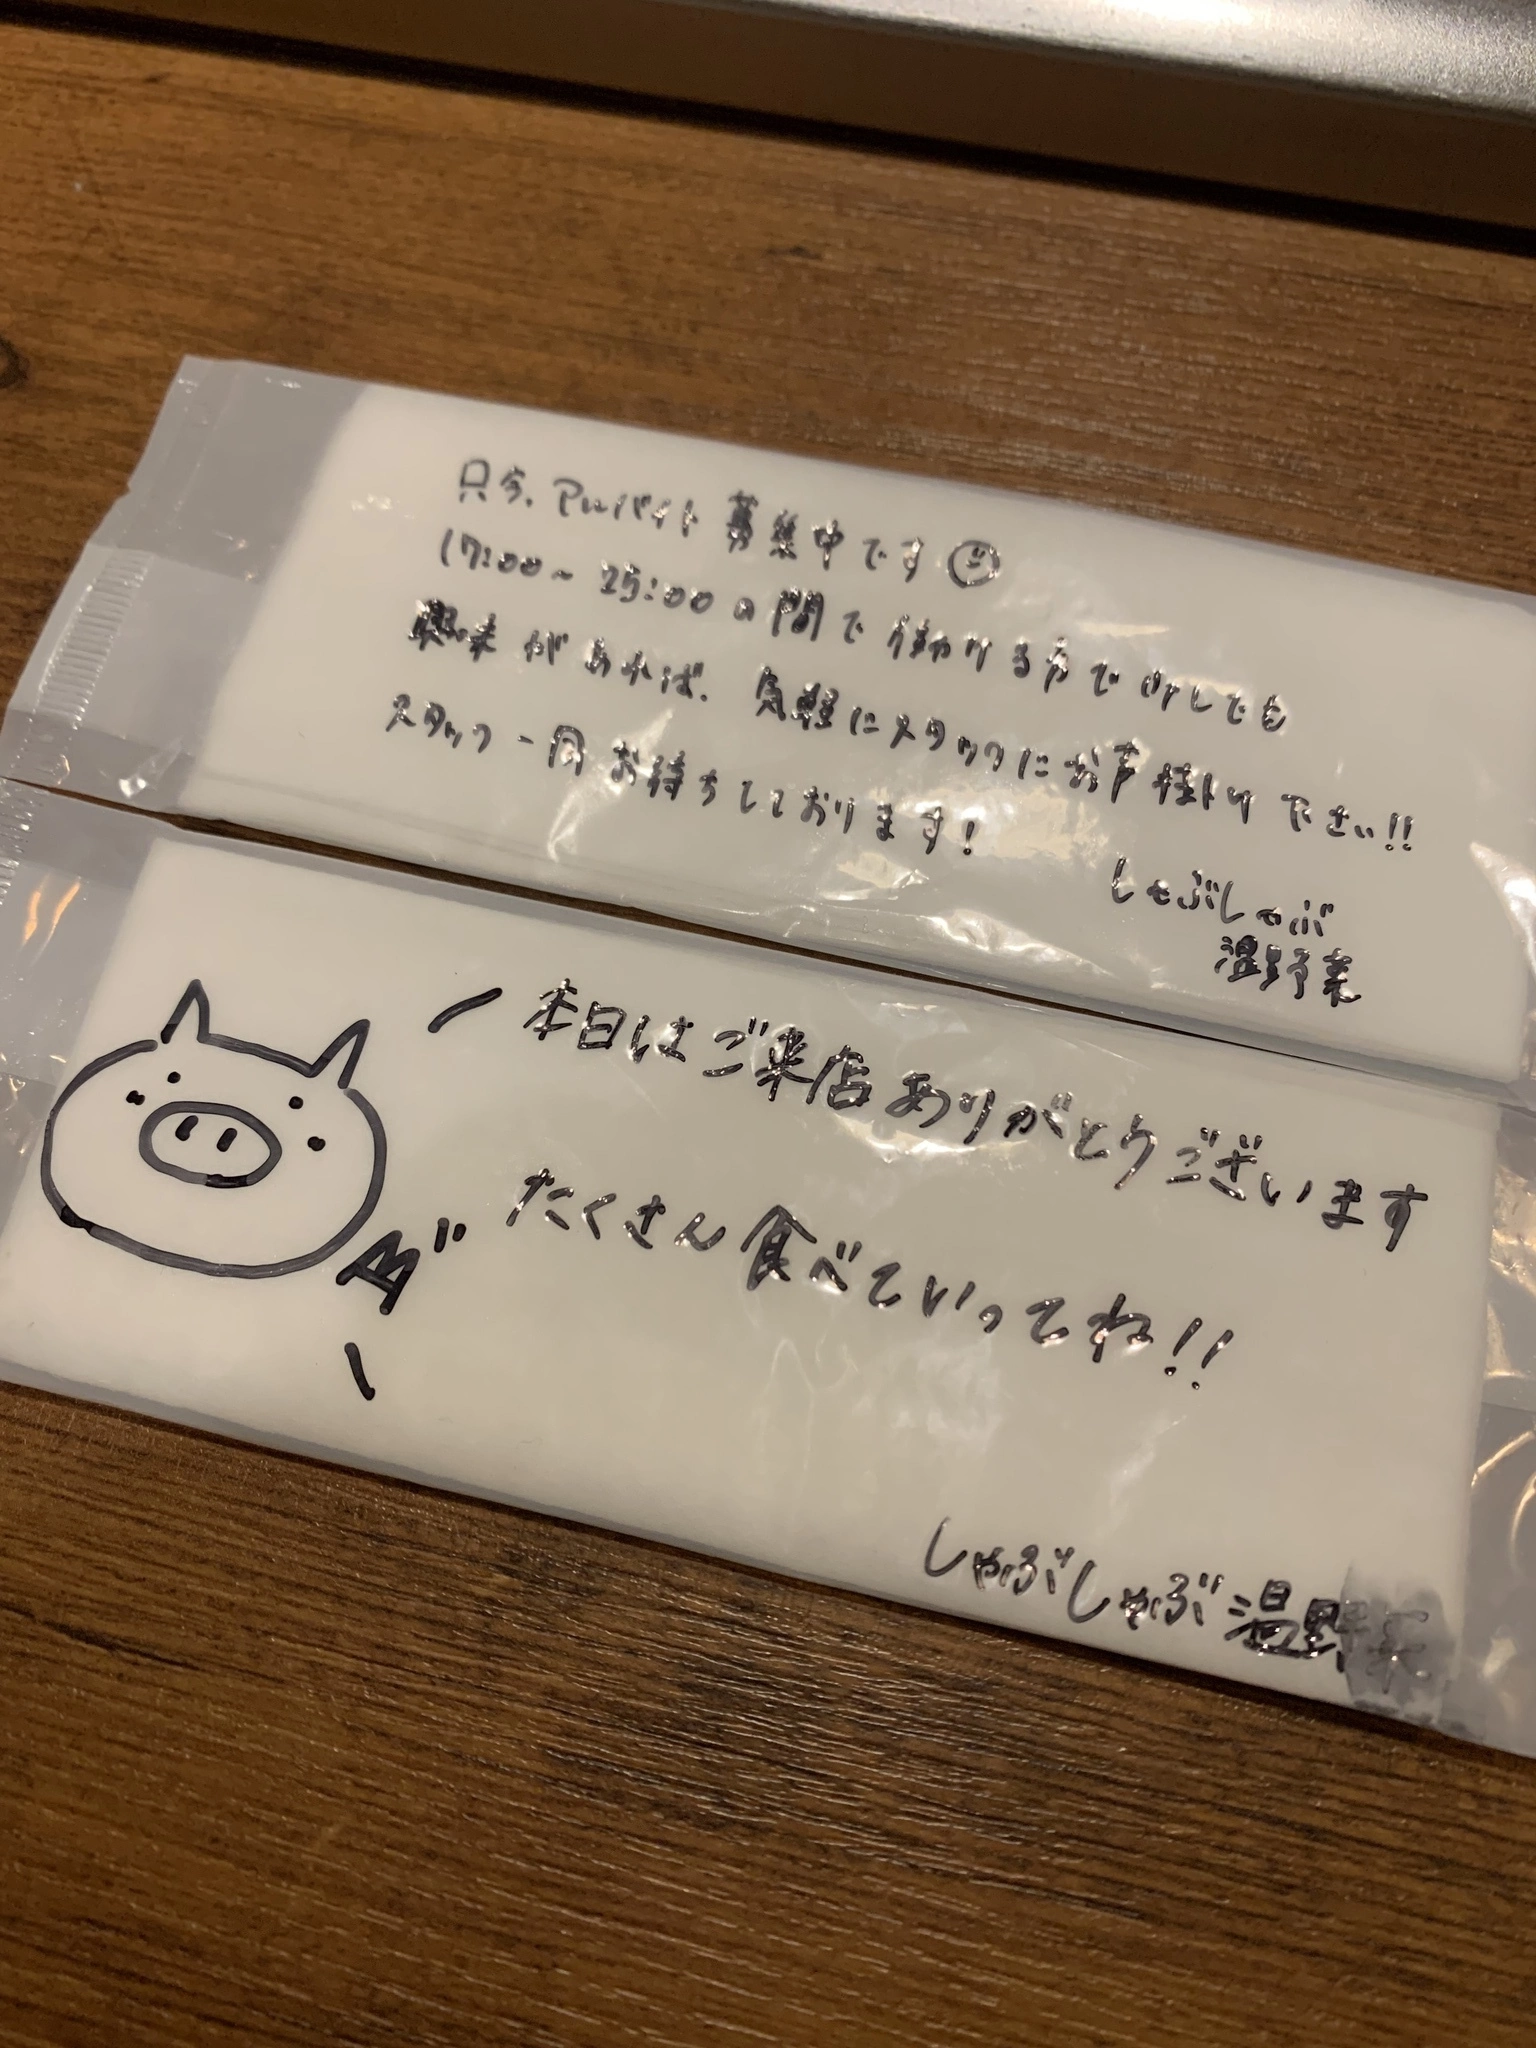 只今、アルバイト募集中です
17:00～25:00の間で働ける方で少しでも
興味があれば、気軽にスタッフにお声掛け下さい!!
スタッフ一同お待ちしております!
しゃぶしゃぶ
温野菜
本日はご来店ありがとうございます
たくさん食べていってね!!
しゃぶしゃぶ温野菜